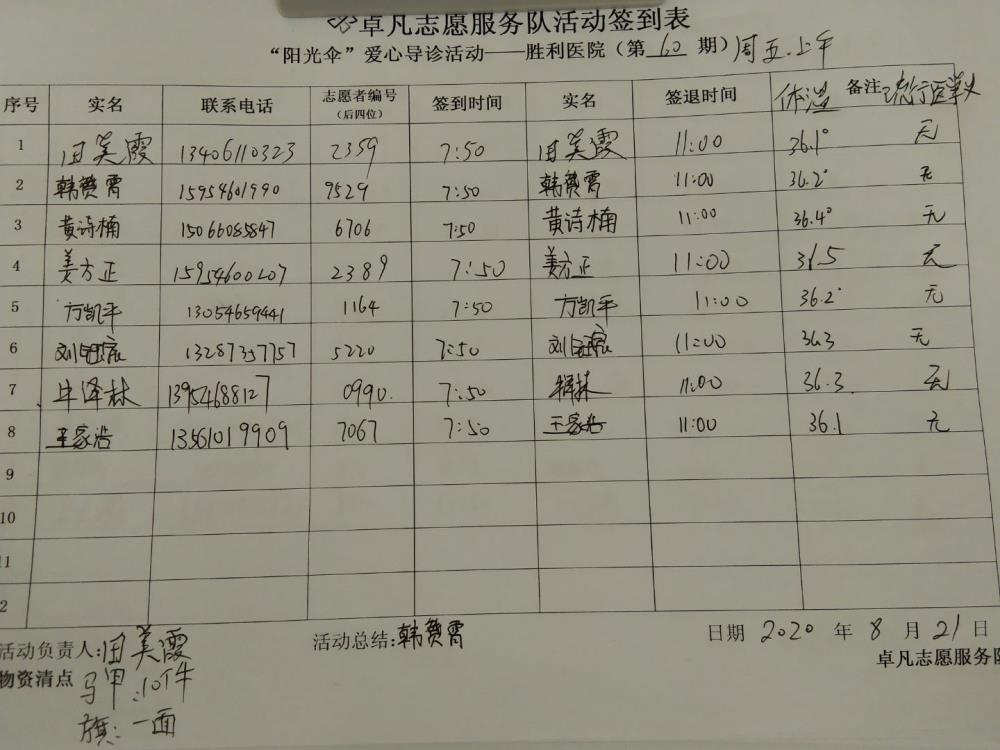 卓凡志愿服务队活动签到表
“阳光伞”爱心导诊活动——胜利医院（第 60 期）周五.上午
序号 实名 联系电话 志愿者编号（后四位） 签到时间 实名 签退时间 体温 备注 流行医学史
1 田美霞 13406110323 2359 7:50 田美霞 11:00 36.1° 无
2 韩贺霄 15954601990 9529 7:50 韩贺霄 11:00 36.2° 无
3 黄诗楠 15066085847 6706 7:50 黄诗楠 11:00 36.4° 无
4 姜方正 15954600207 2389 7:50 姜方正 11:00 36.5 无
5 方凯平 13054659441 1164 7:50 方凯平 11:00 36.2° 无
6 13287357757 5220 7:50 11:00 36.3 无
7 牛泽林 13954688127 0990. 7:50 11:00 36.3 无
8 王家浩 13561019909 7067 7:50 王家浩 11:00 36.1 无
9
10
11
12
活动负责人:田美霞 活动总结:韩贺霄 日期 2020 年 8 月 21 日
卓凡志愿服务队
物资清点 马甲:10件
旗:一面